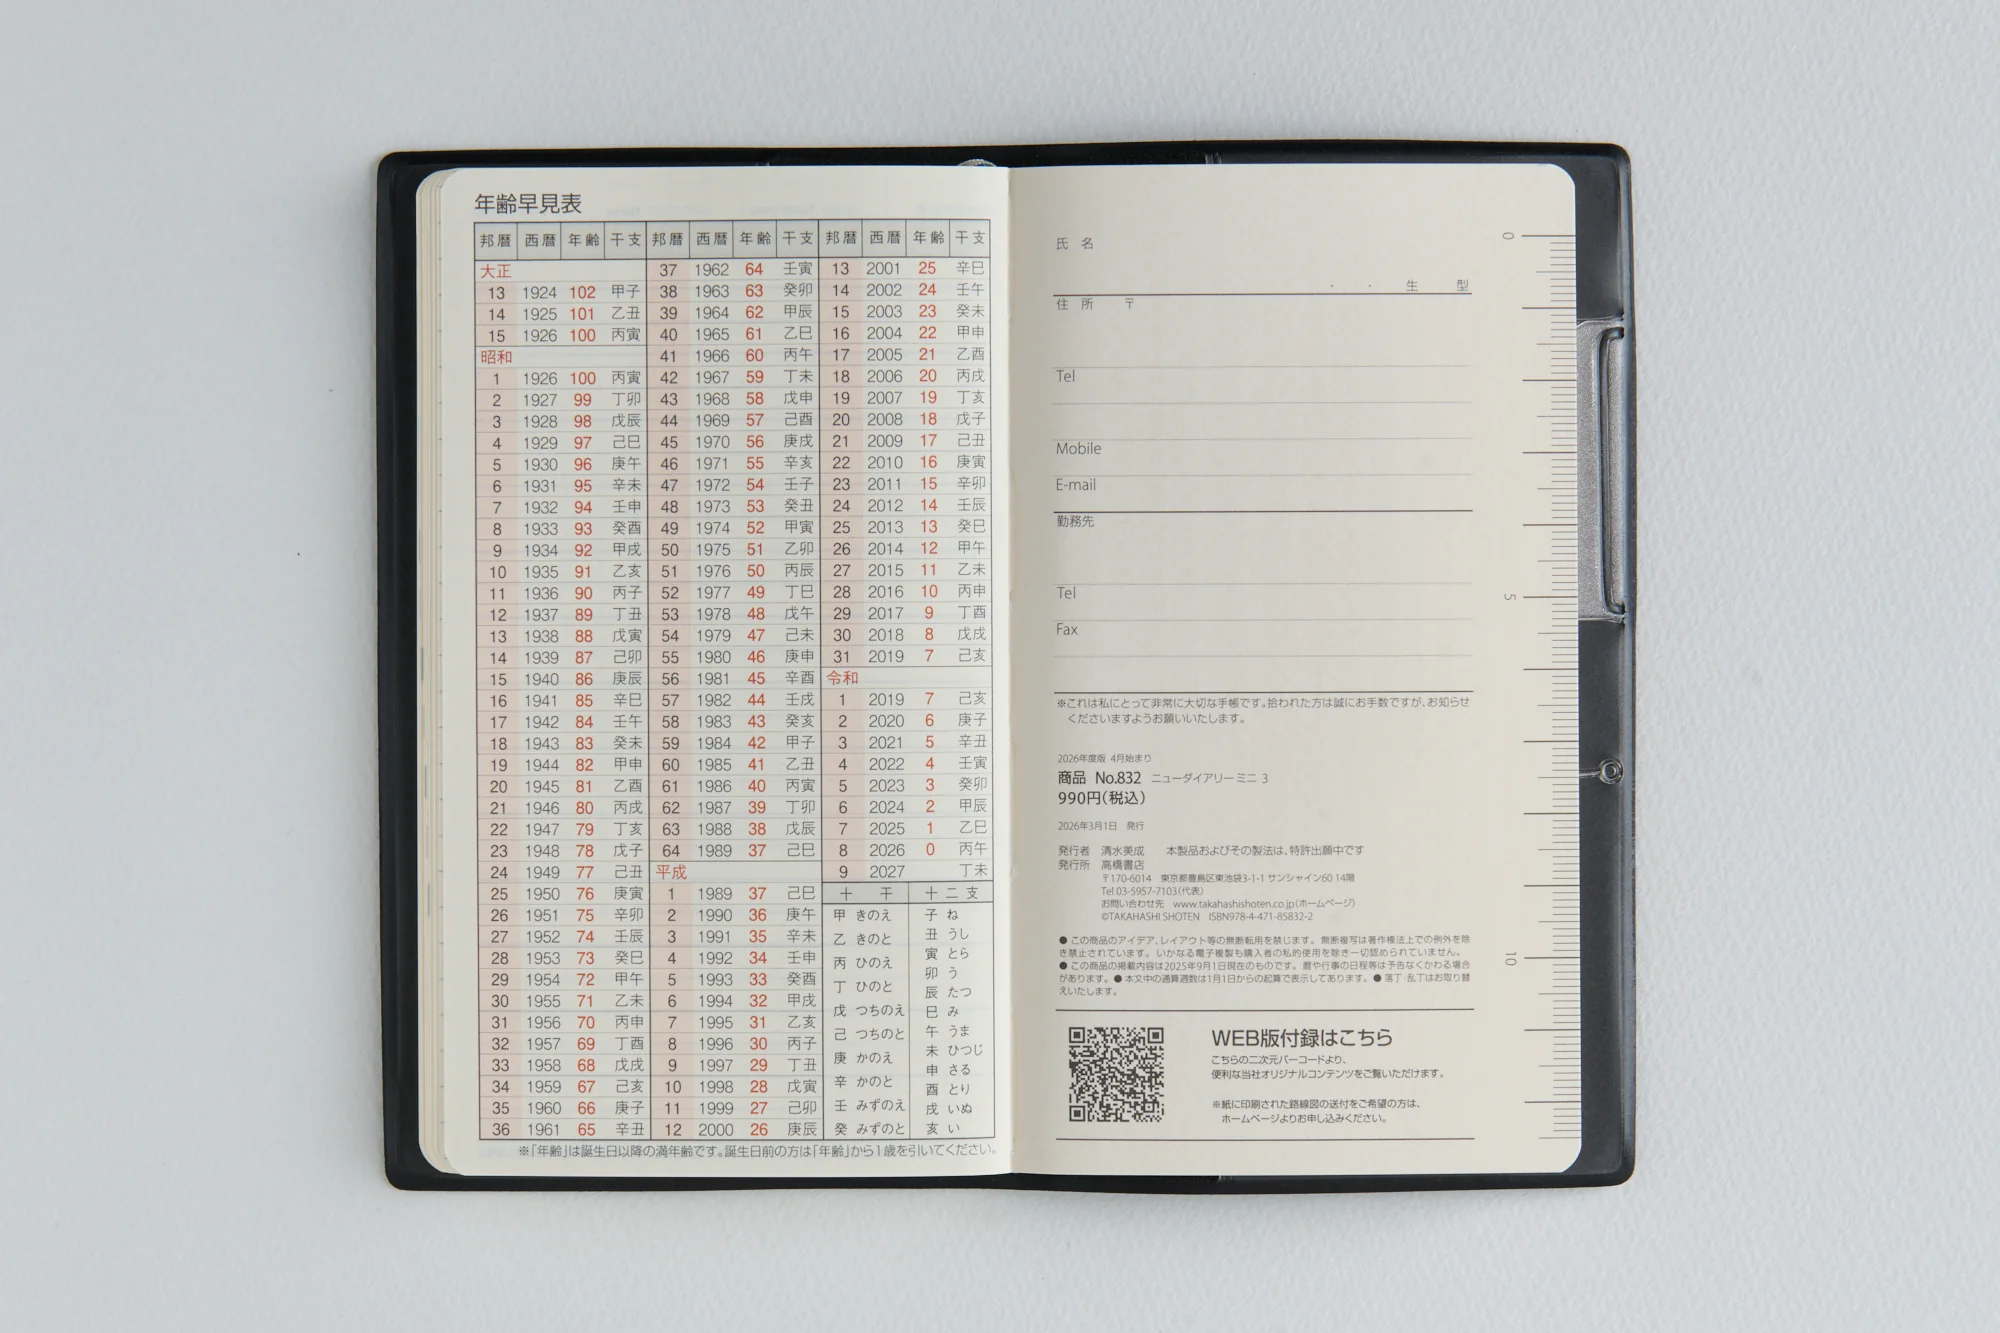 年齢早見表
邦暦 西暦 年齢 干支
大正
13 1924 102 甲子
14 1925 101 乙丑
15 1926 100 丙寅
昭和
1 1926 100 丙寅
2 1927 99 丁卯
3 1928 98 戊辰
4 1929 97 己巳
5 1930 96 庚午
6 1931 95 辛未
7 1932 94 壬申
8 1933 93 癸酉
9 1934 92 甲戌
10 1935 91 乙亥
11 1936 90 丙子
12 1937 89 丁丑
13 1938 88 戊寅
14 1939 87 己卯
15 1940 86 庚辰
16 1941 85 辛巳
17 1942 84 壬午
18 1943 83 癸未
19 1944 82 甲申
20 1945 81 乙酉
21 1946 80 丙戌
22 1947 79 丁亥
23 1948 78 戊子
24 1949 77 己丑
25 1950 76 庚寅
26 1951 75 辛卯
27 1952 74 壬辰
28 1953 73 癸巳
29 1954 72 甲午
30 1955 71 乙未
31 1956 70 丙申
32 1957 69 丁酉
33 1958 68 戊戌
34 1959 67 己亥
35 1960 66 庚子
36 1961 65 辛丑
邦暦 西暦 年齢 干支
37 1962 64 壬寅
38 1963 63 癸卯
39 1964 62 甲辰
40 1965 61 乙巳
41 1966 60 丙午
42 1967 59 丁未
43 1968 58 戊申
44 1969 57 己酉
45 1970 56 庚戌
46 1971 55 辛亥
47 1972 54 壬子
48 1973 53 癸丑
49 1974 52 甲寅
50 1975 51 乙卯
51 1976 50 丙辰
52 1977 49 丁巳
53 1978 48 戊午
54 1979 47 己未
55 1980 46 庚申
56 1981 45 辛酉
57 1982 44 壬戌
58 1983 43 癸亥
59 1984 42 甲子
60 1985 41 乙丑
61 1986 40 丙寅
62 1987 39 丁卯
63 1988 38 戊辰
64 1989 37 己巳
平成
1 1989 37 己巳
2 1990 36 庚午
3 1991 35 辛未
4 1992 34 壬申
5 1993 33 癸酉
6 1994 32 甲戌
7 1995 31 乙亥
8 1996 30 丙子
9 1997 29 丁丑
10 1998 28 戊寅
11 1999 27 己卯
12 2000 26 庚辰
邦暦 西暦 年齢 干支
13 2001 25 辛巳
14 2002 24 壬午
15 2003 23 癸未
16 2004 22 甲申
17 2005 21 乙酉
18 2006 20 丙戌
19 2007 19 丁亥
20 2008 18 戊子
21 2009 17 己丑
22 2010 16 庚寅
23 2011 15 辛卯
24 2012 14 壬辰
25 2013 13 癸巳
26 2014 12 甲午
27 2015 11 乙未
28 2016 10 丙申
29 2017 9 丁酉
30 2018 8 戊戌
31 2019 7 己亥
令和
1 2019 7 己亥
2 2020 6 庚子
3 2021 5 辛丑
4 2022 4 壬寅
5 2023 3 癸卯
6 2024 2 甲辰
7 2025 1 乙巳
8 2026 0 丙午
9 2027 丁未
十干
甲 きのえ
乙 きのと
丙 ひのえ
丁 ひのと
戊 つちのえ
己 つちのと
庚 かのえ
辛 かのと
壬 みずのえ
癸 みずのと
十二支
子 ね
丑 うし
寅 とら
卯 う
辰 たつ
巳 み
午 うま
未 ひつじ
申 さる
酉 とり
戌 いぬ
亥 い
※「年齢」は誕生日以降の満年齢です。誕生日前の方は「年齢」から1歳を引いてください。
氏名
・ ・ 生 型
住所 〒
Tel
Mobile
E-mail
勤務先
Tel
Fax
※これは私にとって非常に大切な手帳です。拾われた方は誠にお手数ですが、お知らせ
くださいますようお願いいたします。
2026年度版 4月始まり
商品 No.832 ニューダイアリー ミニ 3
990円(税込)
2026年3月1日 発行
発行者 清水美成 本製品およびその製法は、特許出願中です
発行所 高橋書店
〒170-6014 東京都豊島区東池袋3-1-1 サンシャイン60 14階
Tel 03-5957-7103(代表)
お問い合わせ先 www.takahashishoten.co.jp(ホームページ)
©TAKAHASHI SHOTEN ISBN978-4-471-85832-2
● この商品のアイデア、レイアウト等の無断転用を禁じます。無断複写は著作権法上での例外を除
き禁止されています。いかなる電子複製も購入者の私的使用を除き一切認められていません。
● この商品の掲載内容は2025年9月1日現在のものです。暦や行事の日程等は予告なくかわる場合
があります。● 本文中の通算週数は1月1日からの起算で表示してあります。● 落丁・乱丁はお取り替
えいたします。
WEB版付録はこちら
こちらの二次元バーコードより、
便利な当社オリジナルコンテンツをご覧いただけます。
※紙に印刷された路線図の送付をご希望の方は、
ホームページよりお申し込みください。
0
5
10